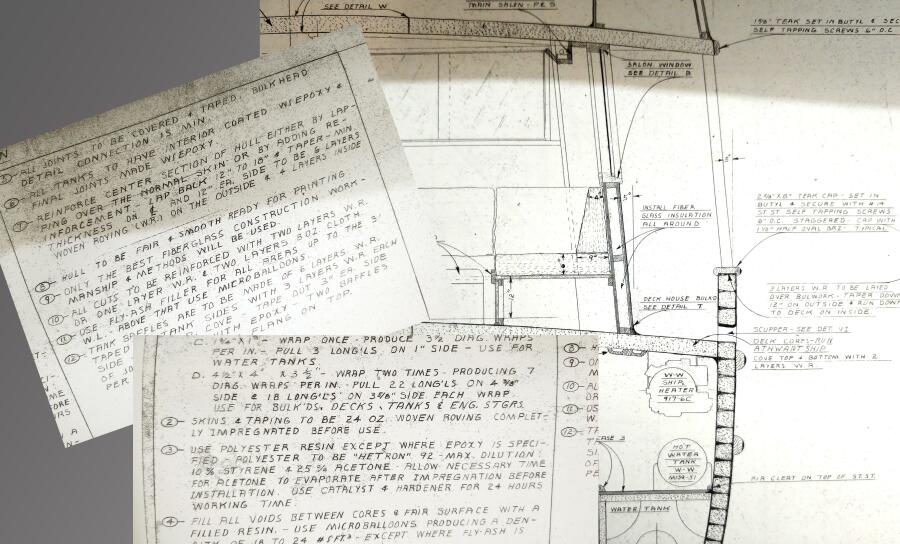 SEE DETAIL W
MAIN SALON - P & S
1⅝" TEAK SET IN BUTYL & SEC
SELF TAPPING SCREWS 6" O.C
SALON WINDOW
SEE DETAIL B
5"
5"
INSTALL FIBER
GLASS INSULATION
ALL AROUND
9"
12"
DECK HOUSE BULKD
SEE DETAIL T
BUTYL & SECURE WITH #14
ST. ST SELF TAPPING SCREWS
6" O.C. STAGGERED. CAP WITH
1½" HALF OVAL BRZ. TYPICAL
3 LAYERS W.R TO BE LAYED
OVER BULWORK - TAPER DOWN
12" ON OUTSIDE & RUN DOWN
TO DECK ON INSIDE.
SCUPPER - SEE DET. V1
DECK CORES-RUN
ATHWARTSHIP
COVE TOP & BOTTOM WITH 2
LAYERS W.R.
W-W
SHIP
HEATER
917-6C
HOT
WATER
TANK
W-W
WATER TANK
ALL JOINTS TO BE COVERED & TAPED. BULKHEAD
DETAIL CONNECTION IS MIN.
ALL TANKS TO HAVE INTERIOR COATED W/EPOXY &
FINAL JOINTS MADE W/EPOXY.
7 REINFORCE CENTER SECTION OF HULL EITHER BY LAP-
PING OVER THE NORMAL SKIN OR BY ADDING RE-
INFORCEMENT - LAP BACK 12" TO 18" & TAPER - MIN.
THICKNESS ON ℄ AND 12" EA. SIDE TO BE 6 LAYERS
WOVEN ROVING (W.R.) ON THE OUTSIDE & 4 LAYERS INSIDE
8 HULL TO BE FAIR & SMOOTH READY FOR PAINTING
9 ONLY THE BEST FIBERGLASS CONSTRUCTION WORK-
MANSHIP & METHODS WILL BE USED.
10 ALL CUTS TO BE REINFORCED WITH TWO LAYERS W.R.
OR ONE LAYER W.R. & TWO LAYERS 8 OZ. CLOTH.
11 USE FLY-ASH FILLER FOR ALL AREAS UP TO THE 3'
W.L. ABOVE THAT USE MICROBALLOONS.
12 TANK BAFFLES ARE TO BE MADE OF 6 LAYERS W.R.
TAPED TO TANK SIDES WITH 3 LAYERS W.R. EACH
C. 1½" X 1" - WRAP ONCE - PRODUCE 3½ DIAG. WRAPS
PER IN. - PULL 3 LONG'LS. ON 1" SIDE - USE FOR
WATER TANKS.
D. 4½" X 4" X 3⅝" - WRAP TWO TIMES - PRODUCING 7
DIAG. WRAPS PER IN. - PULL 22 LONG'LS ON 4⅜"
SIDE & 18 LONG'LS ON 3⅝" SIDE EACH WRAP.
USE FOR BULK'DS, DECKS, TANKS & ENG. STGRS.
2 SKINS & TAPING TO BE 24 OZ. WOVEN ROVING COMPLET-
LY IMPREGNATED BEFORE USE.
3 USE POLYESTER RESIN EXCEPT WHERE EPOXY IS SPECI-
FIED - POLYESTER TO BE "HETRON" 92 - MAX. DILUTION:
10% STYRENE & 25% ACETONE - ALLOW NECESSARY TIME
FOR ACETONE TO EVAPORATE AFTER IMPREGNATION BEFORE
INSTALLATION. USE CATALYST & HARDENER FOR 24 HOURS
WORKING TIME.
4 FILL ALL VOIDS BETWEEN CORES & FAIR SURFACE WITH A
FILLED RESIN. - USE MICROBALLOONS PRODUCING A DEN-
SITY OF 18 TO 24 #S/FT.³ - EXCEPT WHERE FLY-ASH IS
8
9
10
11
12